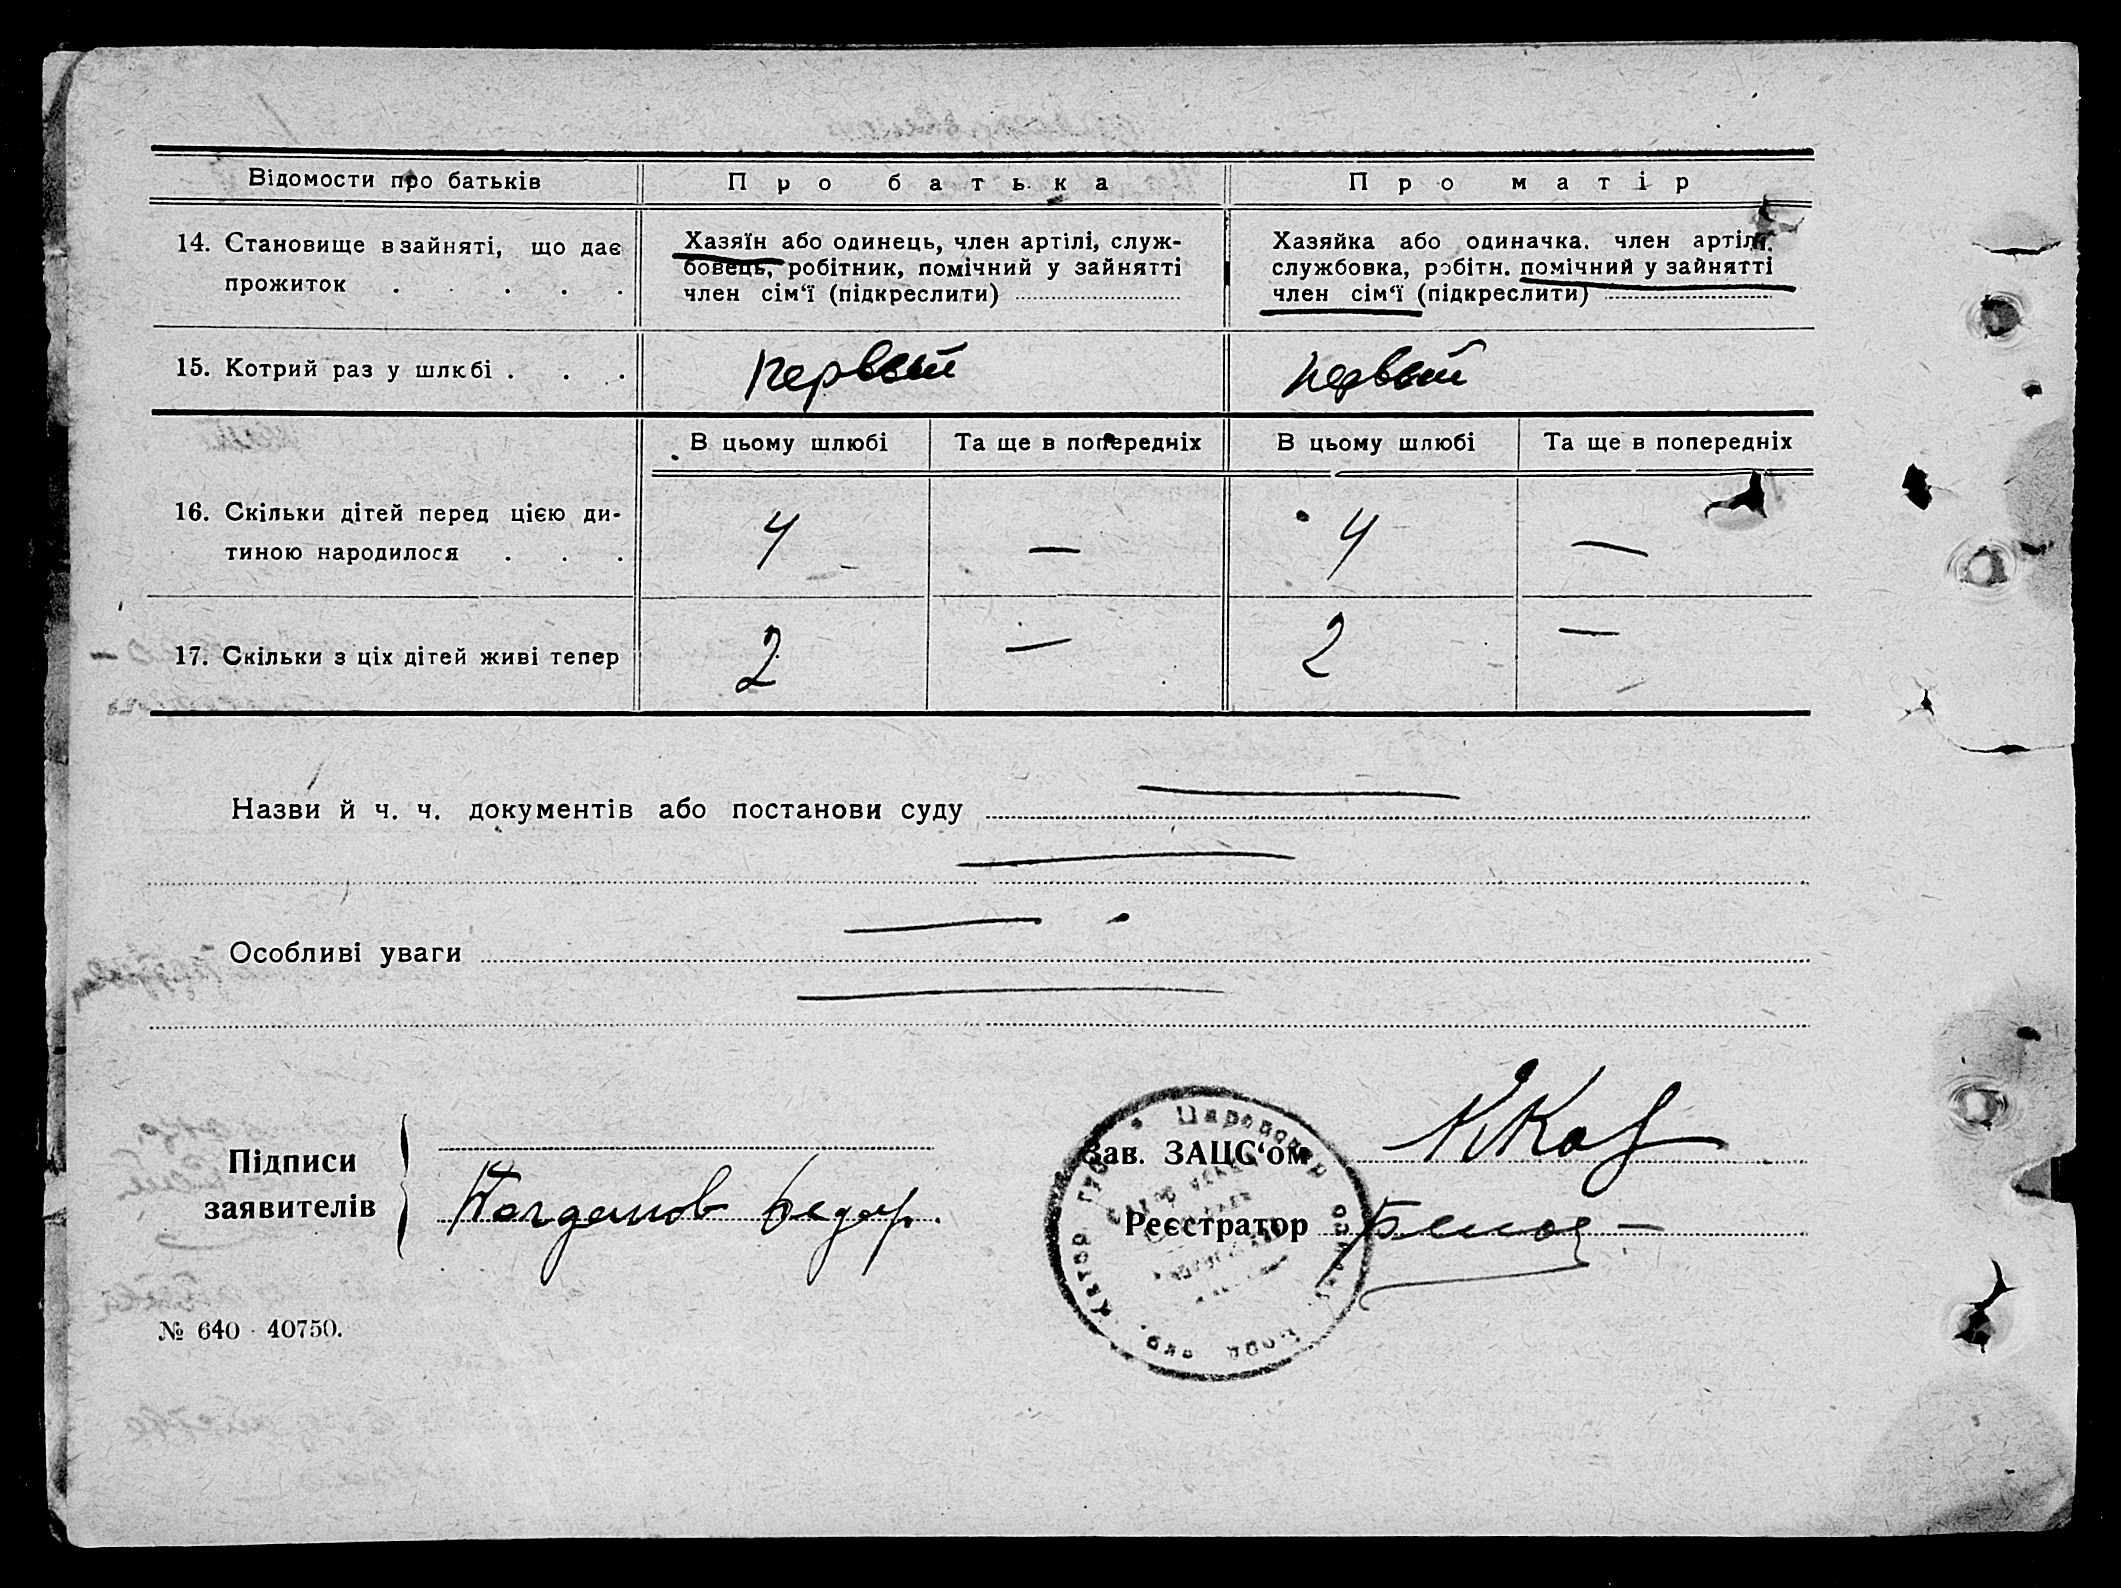 Відомости про батьків
Про батька
Про матір
14. Становище в зайняті, що дає
прожиток . . . . .
Хазяїн або одинець, член артілі, служ-
бовець, робітник, помічний у зайнятті
член сім‘ї (підкреслити)
Хазяйка або одиначка, член артілі,
службовка, робітн. помічний у зайнятті
член сім‘ї (підкреслити)
15. Котрий раз у шлюбі . . .
первый
первый
В цьому шлюбі
Та ще в попередніх
В цьому шлюбі
Та ще в попередніх
16. Скільки дітей перед цією ди-
тиною народилося . . .
4
—
4
—
17. Скільки з ціх дітей живі тепер
2
—
2
—
Назви й ч. ч. документів або постанови суду
Особливі уваги
Підписи
заявителів
Богданов Федор.
Зав. ЗАЦС‘ом
Реєстратор
№ 640 - 40750.